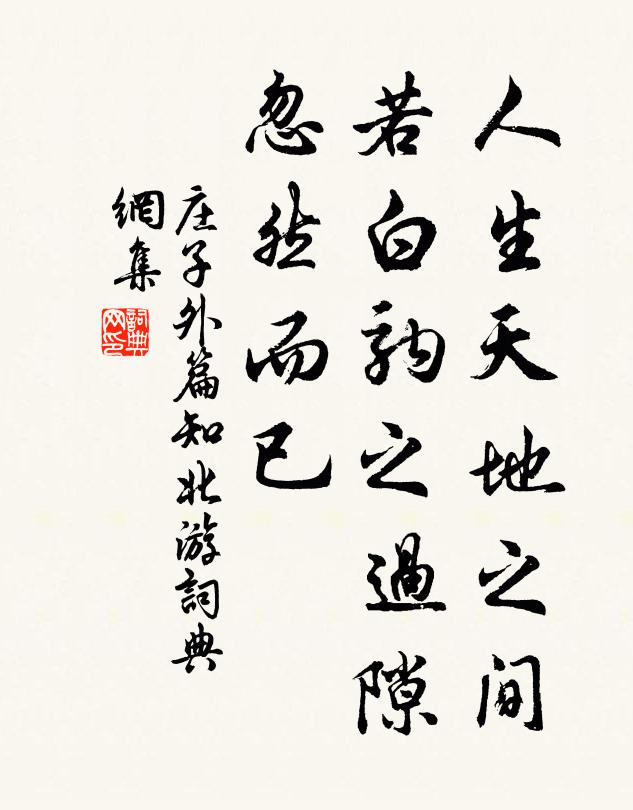 人生天地之间
若白驹之過隙
忽然而已
庄子外篇知北游詞典
網集
詞典网印